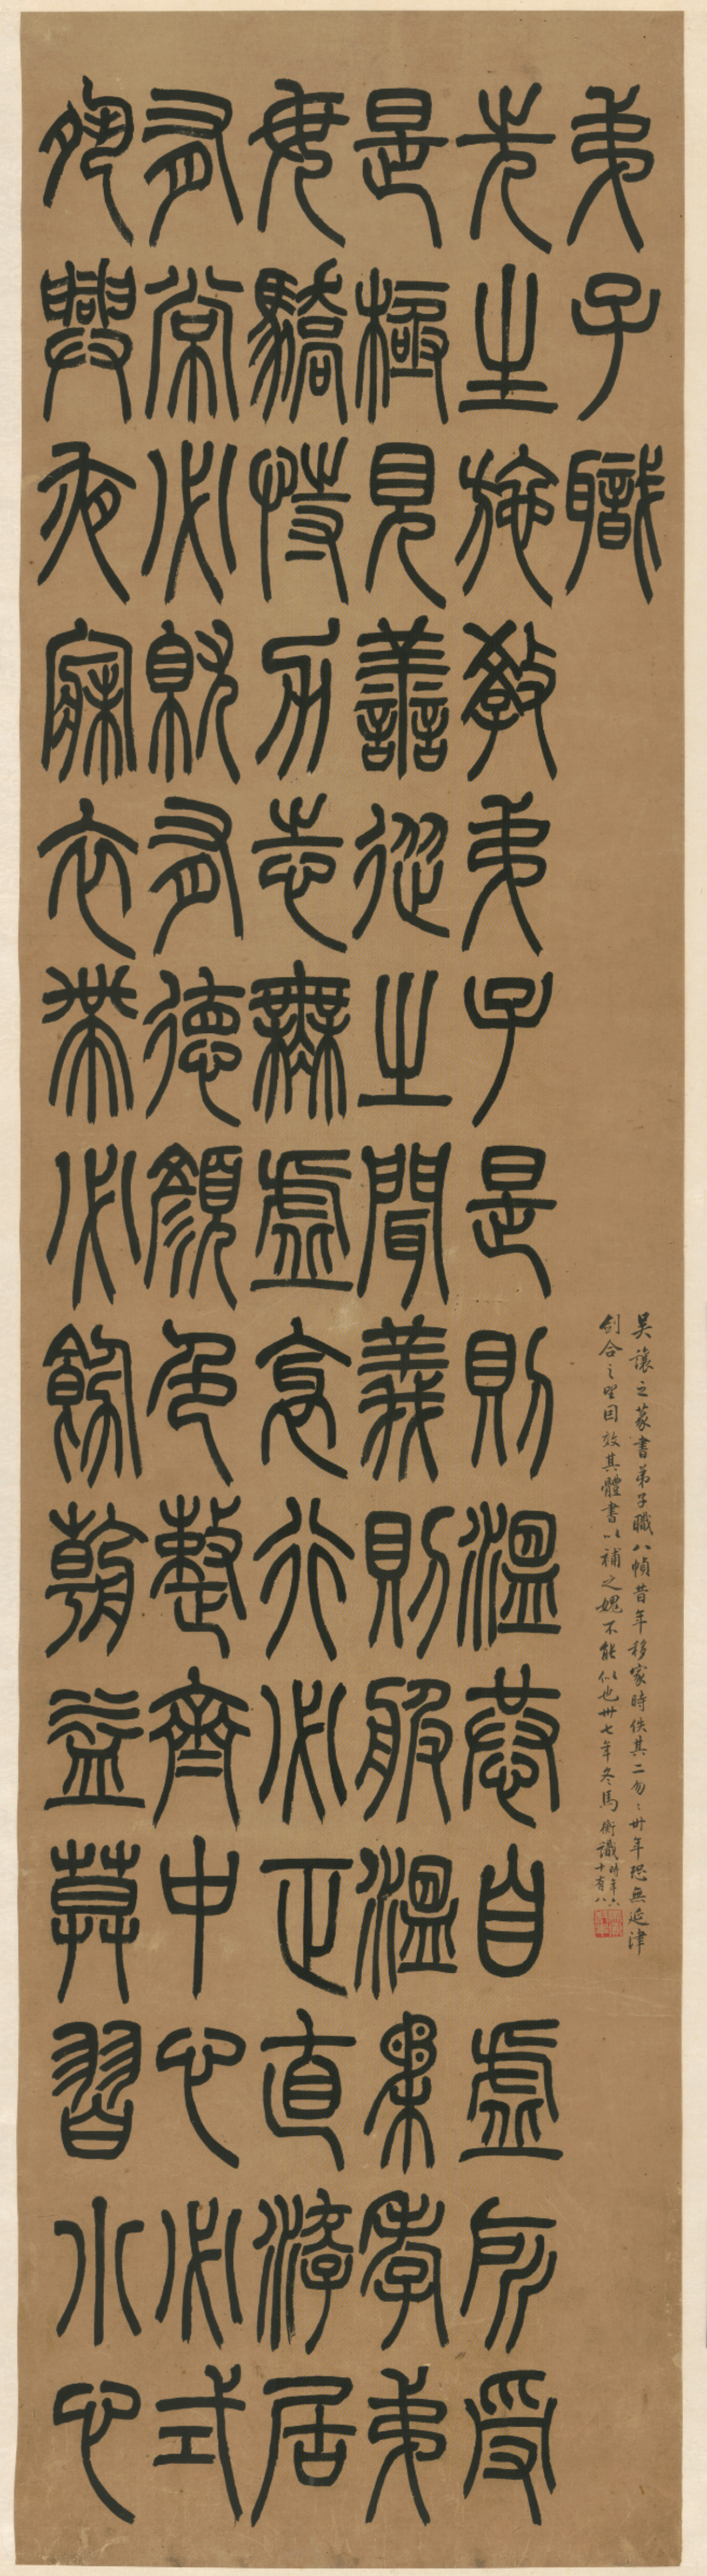 弟子職
先生施教弟子是則溫恭自虛所受
是極見善從之聞義則服溫柔孝弟
毋驕恃力志無虛衺行必正直游居
有常必就有德顏色整齊中心必式
夙興夜寐衣帶必飾朝益莫習小心
吳讓之篆書弟子職八幀昔年移家時佚其二匆〻卅年恐無延津
劍合之望因效其體書以補之媿不能似也卅七年冬馬衡識時年六十有八